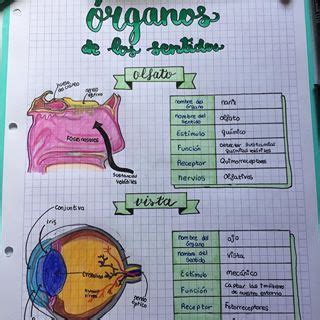 órganos
de los sentidos
olfato
nervio
óptico
Fosas nasales
Sustancias
volátiles
nombre del
órgano
nariz
nombre del
sentido
olfato
Estímulo
químico
Función
Detectar sustancias
químicas volátiles
Receptor
Quimiorreceptores
nervios
olfativos
vista
conjuntiva
iris
nervio
óptico
nombre del
órgano
ojo
nombre del
sentido
vista
Estímulo
mecánico
Función
captar las imágenes
de nuestro entorno
Receptor
Fotorreceptores